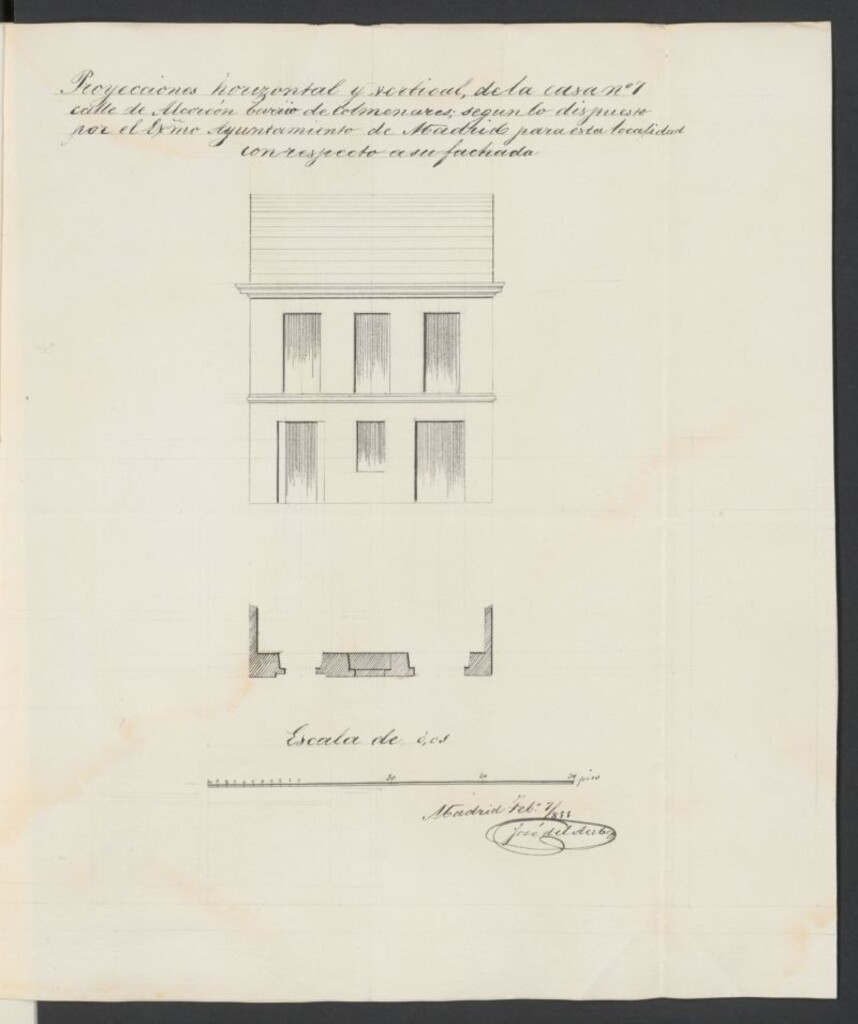 Proyecciones horizontal y vertical, de la casa nº 1
calle de Alarcón barrio de Colmenares; segun lo dispuesto
por el Exmo Ayuntamiento de Madrid para esta localidad
con respecto a su fachada
Escala de
20 pies
Madrid Feb.º
José del